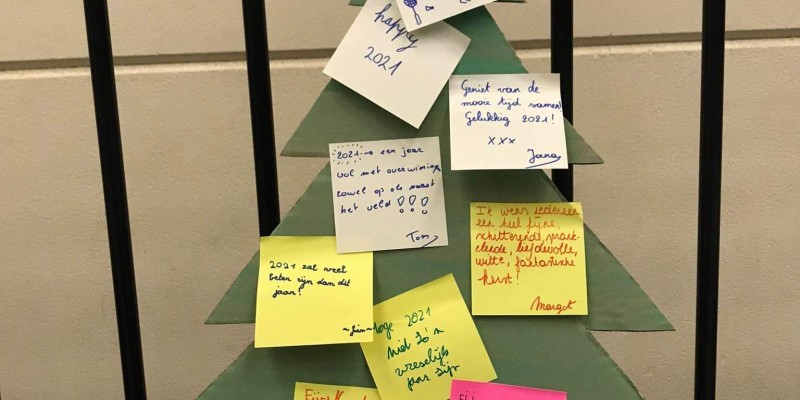 happy
2021
Geniet van de
mooie tijd samen!
Gelukkig 2021!
xxx
Jana
2021 → een jaar
vol met overwinning
zowel op als naast
het veld !!!
Tom
Ik wens iedereen
een heel fijne,
schitterende,
liefdevolle,
witte, fantastische
kerst!
Margot
2021 zal veel
beter zijn dan dit
jaar!
2021
nid zo'n
vreselijk
jaar zijn